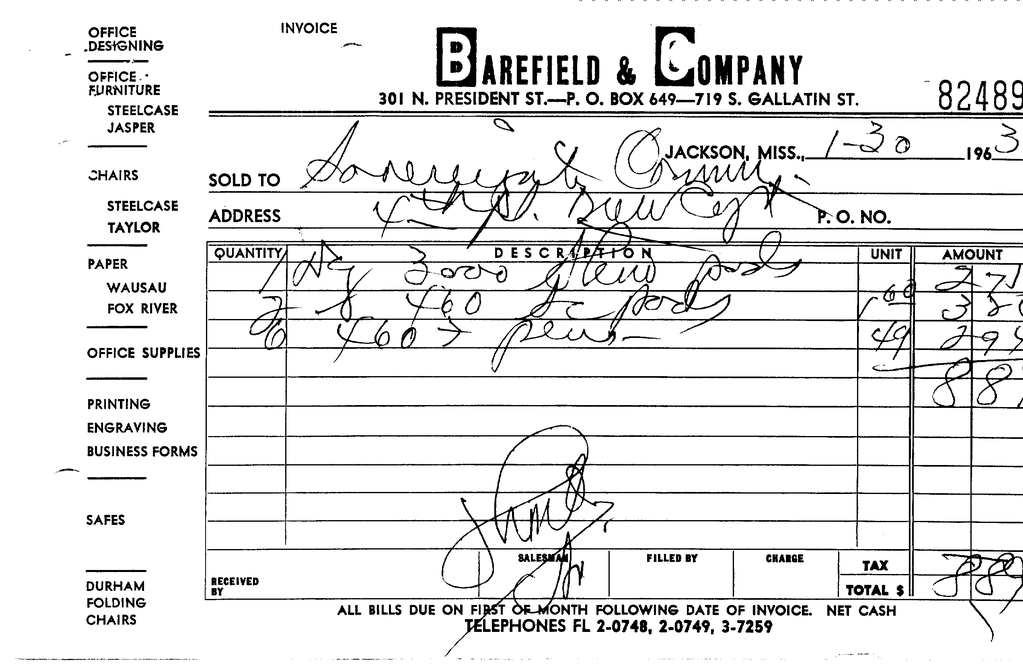 INVOICE
OFFICE DESIGNING
OFFICE FURNITURE
STEELCASE
JASPER
CHAIRS
STEELCASE
TAYLOR
PAPER
WAUSAU
FOX RIVER
OFFICE SUPPLIES
PRINTING
ENGRAVING
BUSINESS FORMS
SAFES
DURHAM
FOLDING
CHAIRS
BAREFIELD & COMPANY
301 N. PRESIDENT ST.—P. O. BOX 649—719 S. GALLATIN ST.
82489
JACKSON, MISS., 1-30 1963
SOLD TO Sovereignty Comm.
ADDRESS 4th Fl. New Capt P. O. NO.
QUANTITY DESCRIPTION UNIT AMOUNT
1 Dz 3000 Steno pads
2 460 pads 1 60 3 20
6 460 pens 49 2 94
8 89
SALESMAN FILLED BY CHARGE TAX
RECEIVED BY TOTAL $ 889
ALL BILLS DUE ON FIRST OF MONTH FOLLOWING DATE OF INVOICE. NET CASH
TELEPHONES FL 2-0748, 2-0749, 3-7259